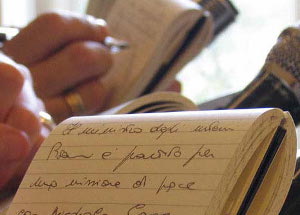 Il ministro degli interni
è partito per
una missione di pace